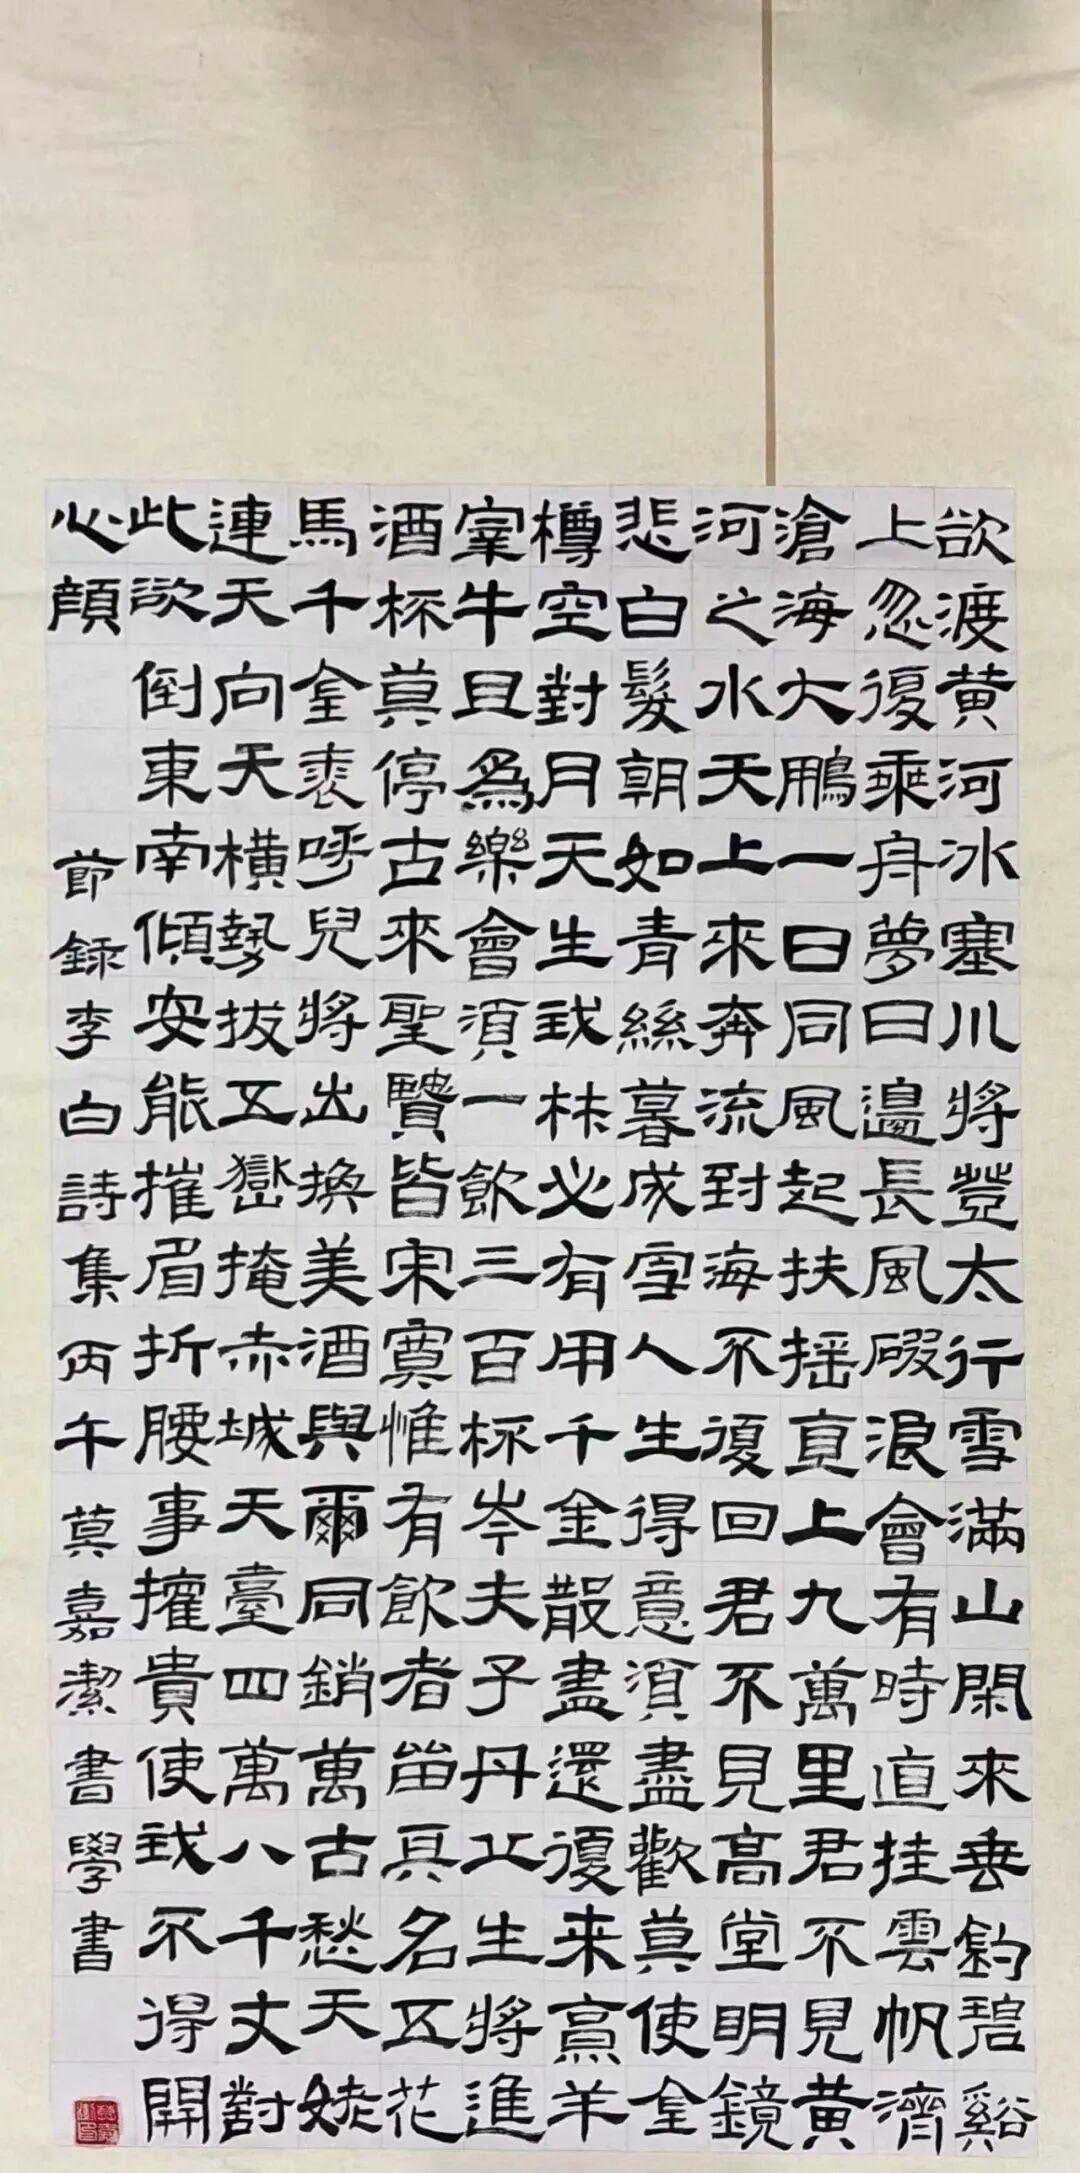 欲渡黄河冰塞川將登太行雪滿山閑來垂釣碧谿
上忽復乘舟夢日邊長風破浪會有時直挂雲帆濟
滄海大鵬一日同風起扶摇直上九萬里君不見黄
河之水天上來奔流到海不復回君不見高堂明鏡
悲白髮朝如青絲暮成雪人生得意須盡歡莫使金
樽空對月天生我材必有用千金散盡還復来烹羊
宰牛且爲樂會須一飲三百杯岑夫子丹丘生將進
酒杯莫停古來聖賢皆寂寞惟有飲者留其名五花
馬千金裘呼兒將出換美酒與爾同銷萬古愁天姥
連天向天橫勢拔五嶽掩赤城天臺四萬八千丈對
此欲倒東南傾安能摧眉折腰事權貴使我不得開
心顔
節録李白詩集丙午莫嘉潔書學書